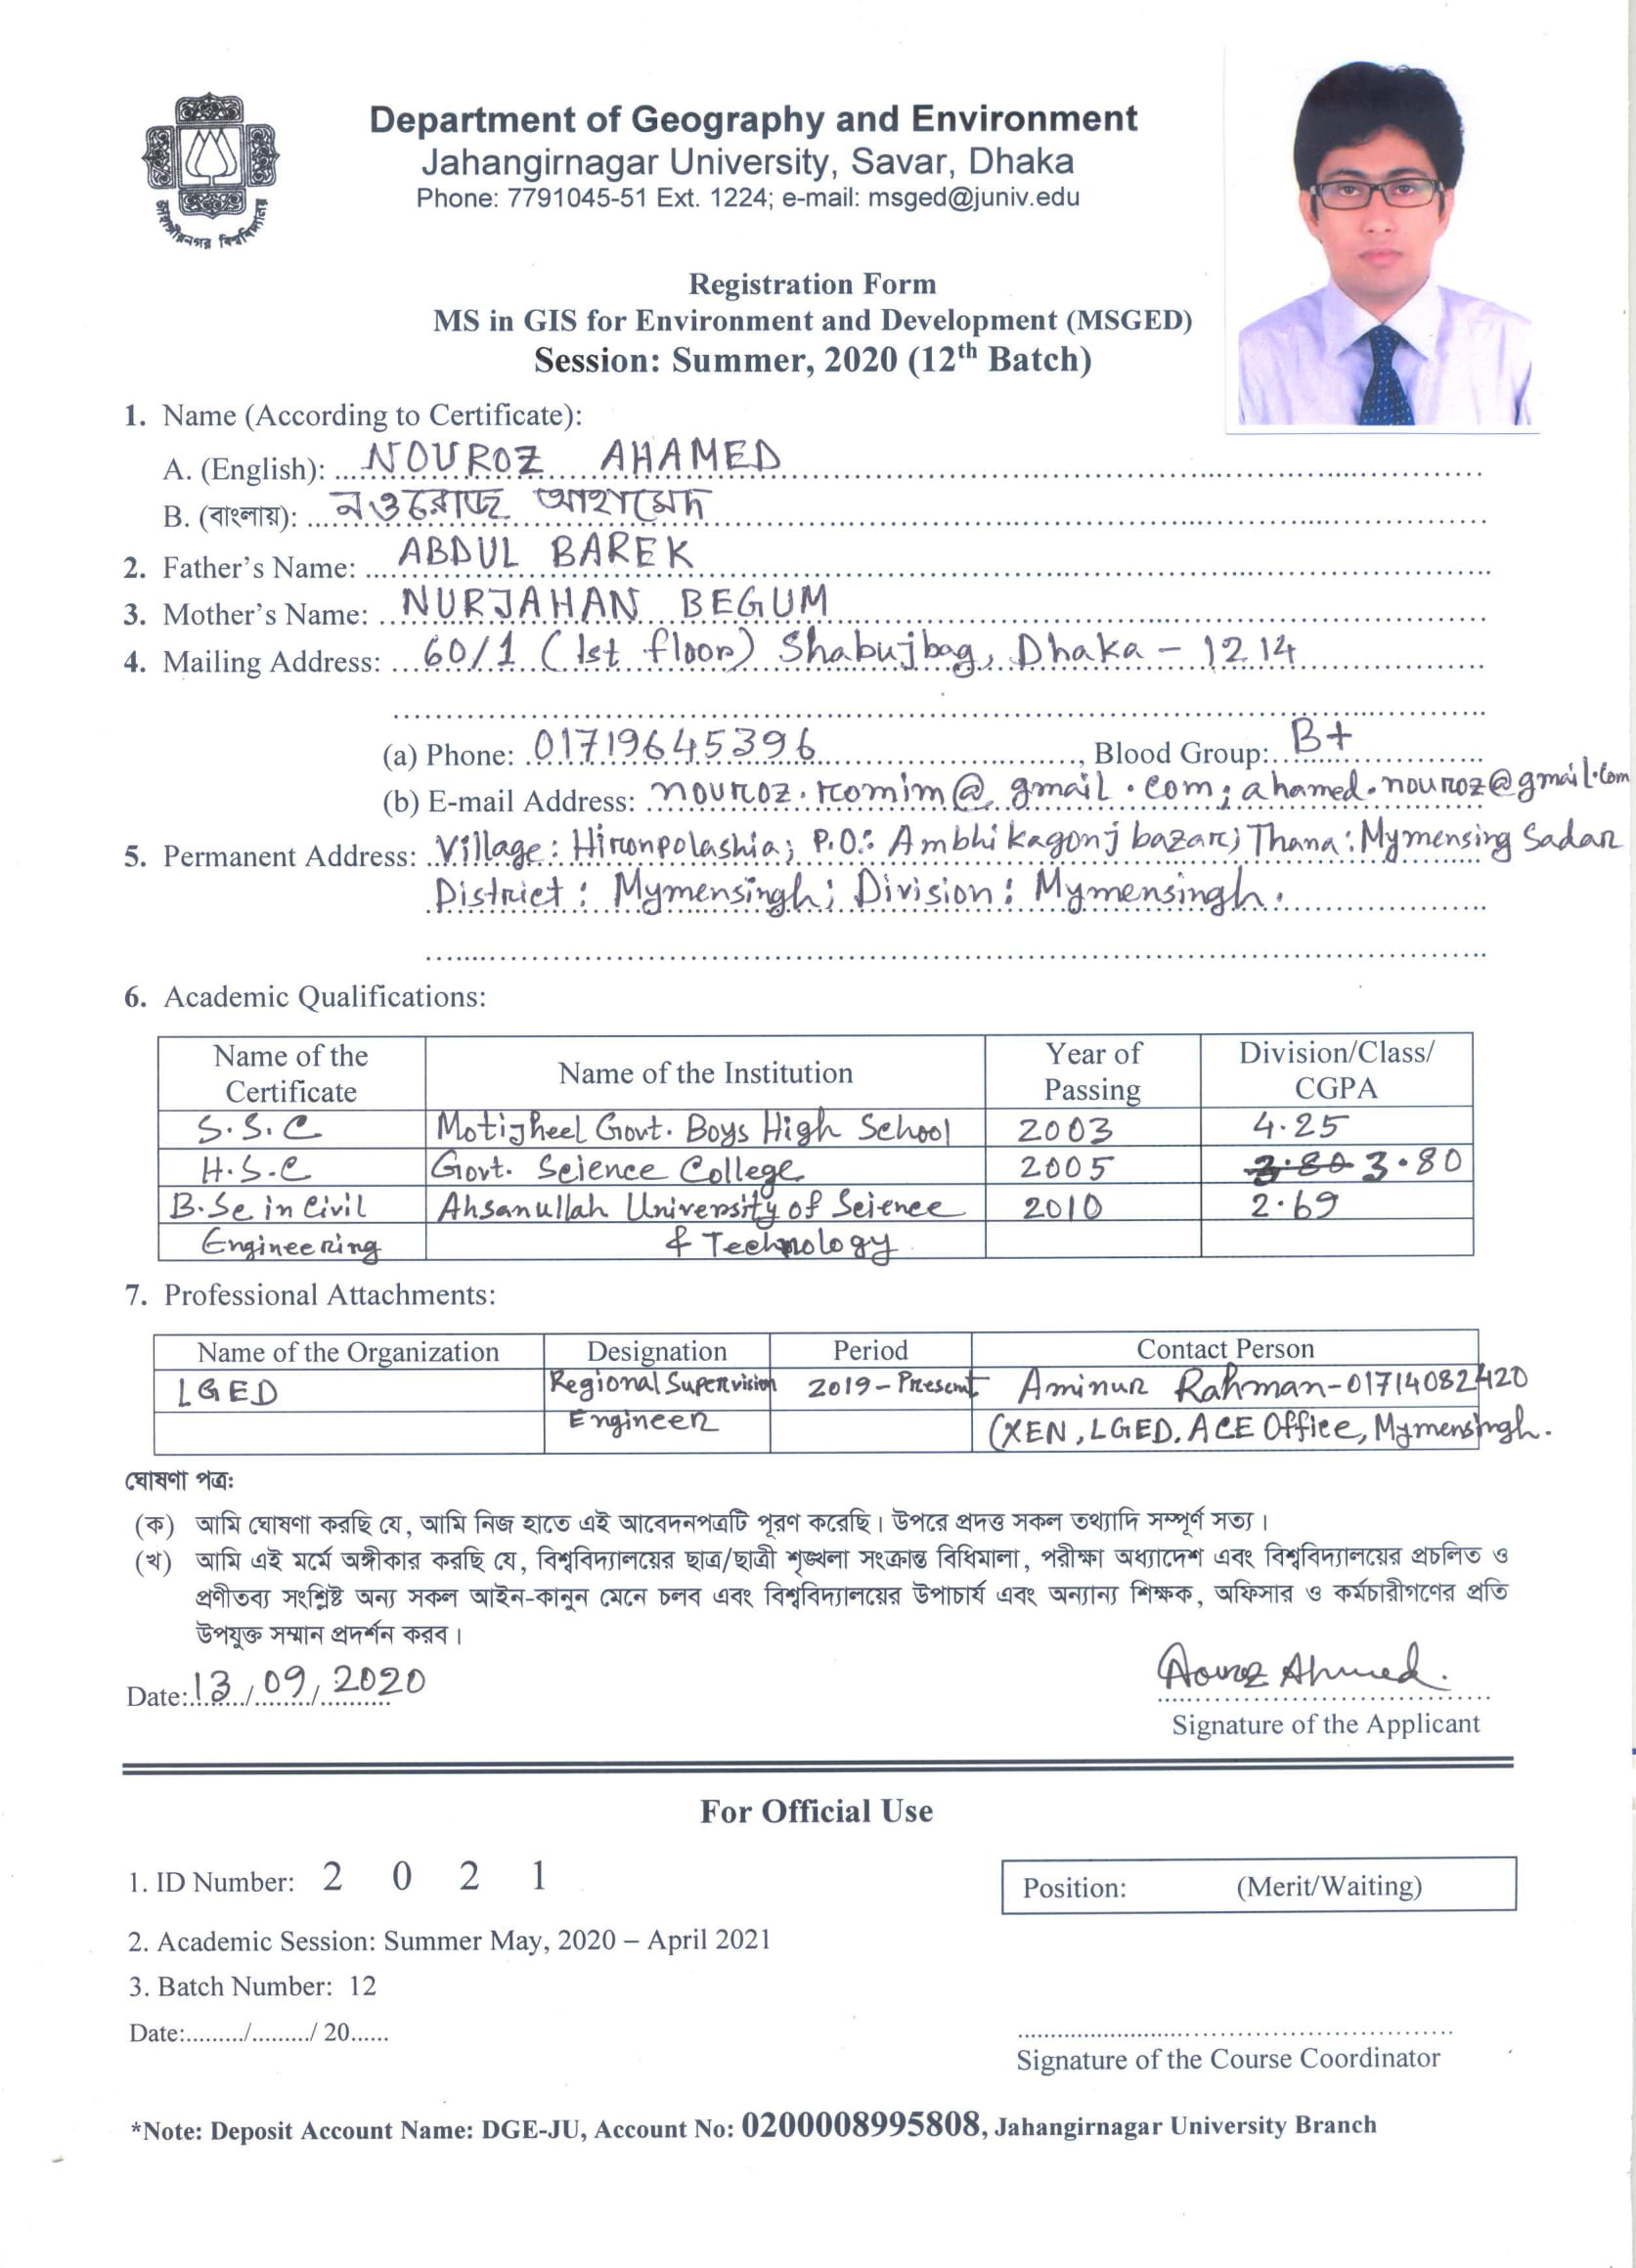 জাহাঙ্গীরনগর বিশ্ববিদ্যালয়
Department of Geography and Environment
Jahangirnagar University, Savar, Dhaka
Phone: 7791045-51 Ext. 1224; e-mail: msged@juniv.edu
Registration Form
MS in GIS for Environment and Development (MSGED)
Session: Summer, 2020 (12th Batch)
1. Name (According to Certificate):
A. (English): NOUROZ AHAMED
B. (বাংলায়): নওরোজ আহামেদ
2. Father's Name: ABDUL BAREK
3. Mother's Name: NURJAHAN BEGUM
4. Mailing Address: 60/1 (1st floor) Shabujbag, Dhaka - 1214
(a) Phone: 01719645396, Blood Group: B+
(b) E-mail Address: nouroz.romim@gmail.com; ahamed.nouroz@gmail.com
5. Permanent Address: Village: Hironpolashia; P.O: Ambhikagonj bazar; Thana: Mymensing Sadar
District: Mymensingh; Division: Mymensingh.
6. Academic Qualifications:
Name of the Certificate Name of the Institution Year of Passing Division/Class/CGPA
S.S.C Motijheel Govt. Boys High School 2003 4.25
H.S.C Govt. Science College 2005 3.80 3.80
B.Sc in Civil Ahsanullah University of Science 2010 2.69
Engineering & Technology
7. Professional Attachments:
Name of the Organization Designation Period Contact Person
LGED Regional Supervision 2019-Present Aminur Rahman-01714082420
Engineer (XEN, LGED, ACE Office, Mymensingh.
ঘোষণা পত্র:
(ক) আমি ঘোষণা করছি যে, আমি নিজ হাতে এই আবেদনপত্রটি পূরণ করেছি। উপরে প্রদত্ত সকল তথ্যাদি সম্পূর্ণ সত্য।
(খ) আমি এই মর্মে অঙ্গীকার করছি যে, বিশ্ববিদ্যালয়ের ছাত্র/ছাত্রী শৃঙ্খলা সংক্রান্ত বিধিমালা, পরীক্ষা অধ্যাদেশ এবং বিশ্ববিদ্যালয়ের প্রচলিত ও
প্রণীতব্য সংশ্লিষ্ট অন্য সকল আইন-কানুন মেনে চলব এবং বিশ্ববিদ্যালয়ের উপাচার্য এবং অন্যান্য শিক্ষক, অফিসার ও কর্মচারীগণের প্রতি
উপযুক্ত সম্মান প্রদর্শন করব।
Nouroz Ahmed.
Date: 13/09/2020
Signature of the Applicant
For Official Use
1. ID Number: 2 0 2 1
Position: (Merit/Waiting)
2. Academic Session: Summer May, 2020 – April 2021
3. Batch Number: 12
Date:........./........./ 20......
Signature of the Course Coordinator
*Note: Deposit Account Name: DGE-JU, Account No: 0200008995808, Jahangirnagar University Branch